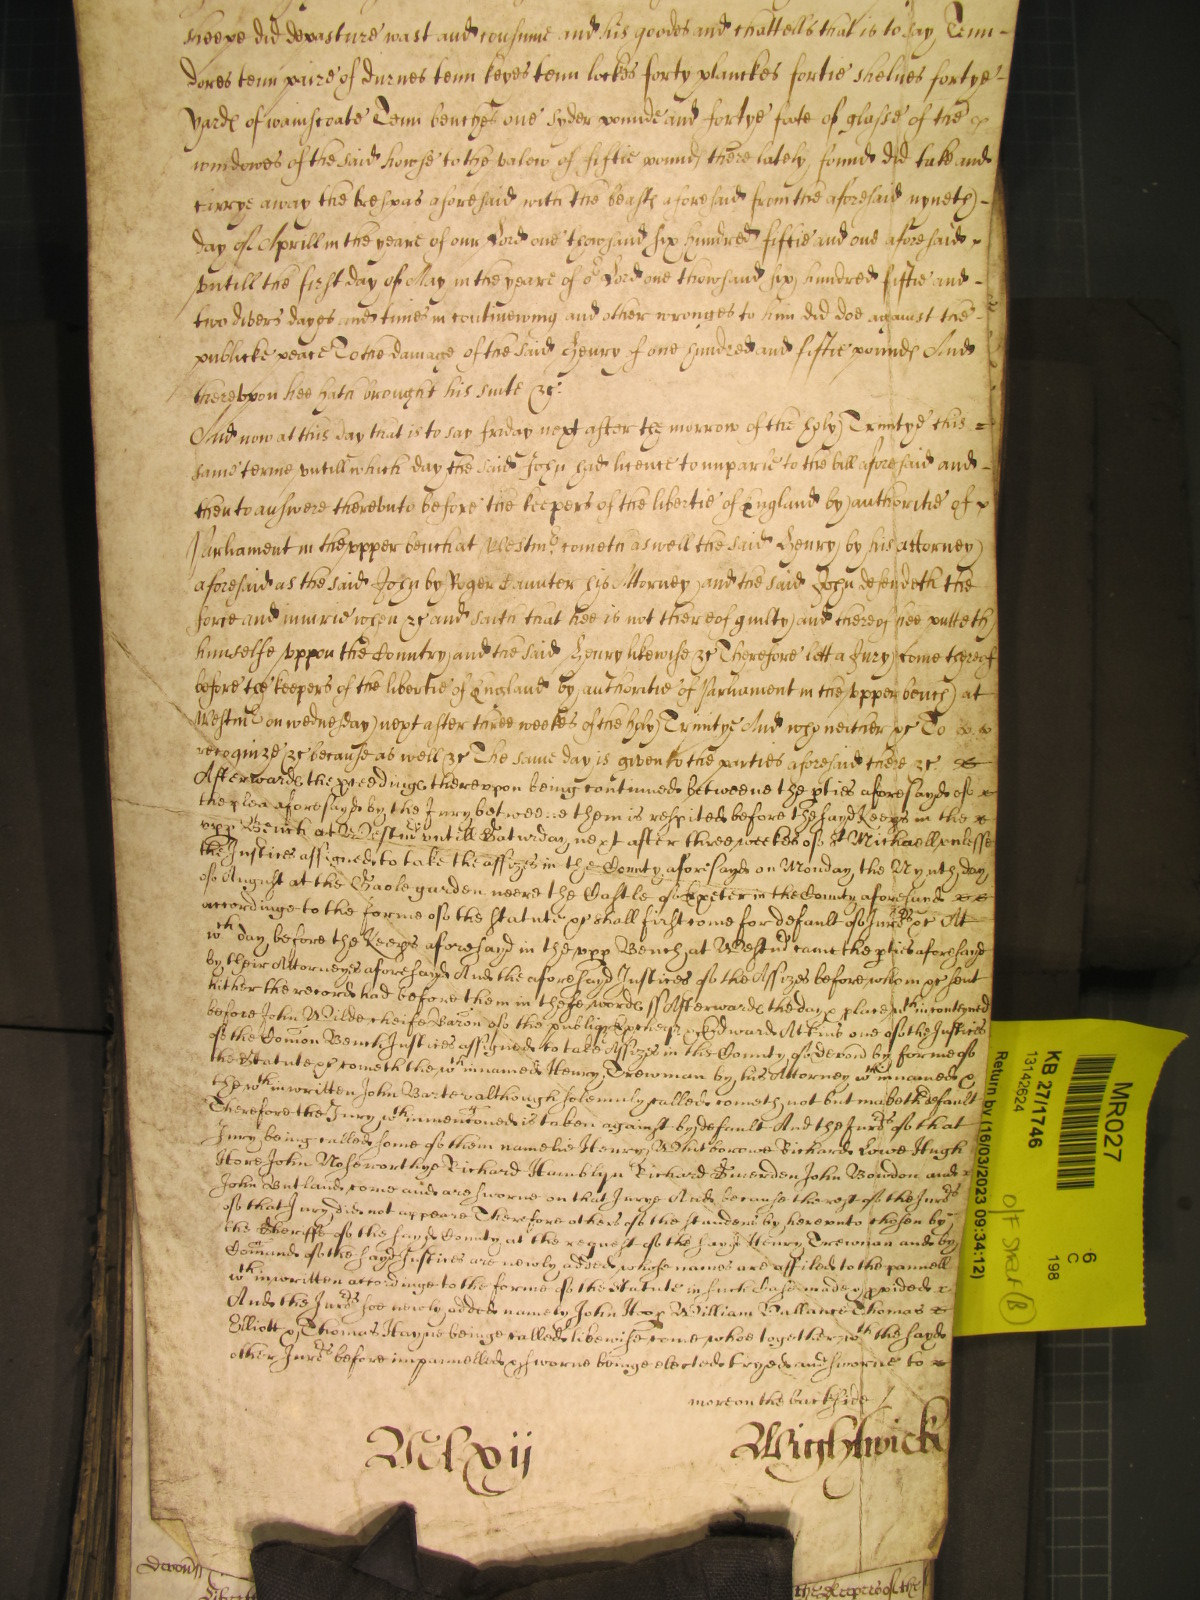 sheepe did depasture wast and consume and his goodes and chattells that is to say Tenn -
dores tenn paire of durnes tenn keyes tenn lockes forty planckes fortie shelues fortye
yard of wainscoate Tenn benches one syder pounde and fortye foote of glasse of the
windowes of the said howse to the valew of fiftie pound there lately found did take and
carrye away the trespas aforesaid with the beast aforesaid from the aforesaid nyneth -
day of Aprill in the yeare of our Lord one thowsand six hundred fiftie and one aforesaid
vntill the first day of May in the yeare of or Lord one thowsand six hundred fiftie and -
two divers dayes and times in continewing and other wronges to him did doe against the -
publicke peace To the damage of the said Henry of one hundred and fiftie pound And
therevpon hee hath brought his suite &c.
And now at this day that is to say friday next after the morrow of the holy Trinitye this =
same terme vntill which day the said John had licence to imparle to the bill aforesaid and -
then to answere therevnto before the keepers of the libertie of England by authoritie of
Parliament in the vpper bench at Westmr cometh aswell the said Henry by his attorney
aforesaid as the said John by Roger Caunter his Attorney and the said John defendeth the
force and iniurie when &c and saith that hee is not thereof guilty and thereof hee putteth
himselfe vppon the Country and the said Henry likewise &c Therefore lett a Jury come thereof
before the keepers of the libertie of England by authoritie of Parliament in the vpper bench at
Westmr on wednesday next after three weekes of the holy Trinitye And who neither &c To
recognize &c because as well &c The same day is given to the parties aforesaid there &c.
Afterward the pceeding therevpon being continued betweene the pties aforesayd of
the plea aforesayd by the Jury betweene them is respited before the sayd Keeps in the
vpp Bench at Westmr vntill Saturday next after three weekes of St Michaell vnlesse
the Justices assigned to take the assizes in the County aforesayd on Monday the Nynth day
of August at the Gaole garden neere the Castle of Exeter in the County aforesayd
accordinge to the forme of the Statute &c shall first come for default of Jurds &c At
wch day before the Keeps aforesayd in the vpp Bench at Westmr came the pties aforesayd
by their Attorneys aforesayd And the aforesayd Justices of the Assizes before whom &c sent
hither the record had before them in these word ss Afterward the day & place within conteyned
before John Wilde cheife Baron of the publiq Excheqr & Edward Atkins one of the Justices
of the Comon Bench Justices assigned to take Assizes in the County of Devon by forme of
the Statute &c cometh the within named Henry Trewman by his Attorney within named &
the within written John Barter although solemnly called cometh not but maketh default
Therefore the Jury within menconed is taken against by default And the Jurds of that
Jury being called some of them namelie Henry Whitborowe Richard Lowe Hugh
Hore John Nosworthye Richard Hamblyn Richard Smerden John Bowdon and
John Butland come and are sworne on that Jurye And because the rest of the Jurds
of that Jury did not appeare Therefore others of the standers by herevnto chosen by
the Sheriffe of the sayd County at the request of the sayd Henry Trewman and by
Comand of the sayd Justices are newly added whose names are affiled to the pannell
within written accordinge to the forme of the Statute in such Case made & pvided
And the Jurds soe newly added namely John Hopp William Ballance Thomas
Elliott & Thomas Hayne beinge called likewise come whoe together wth the sayd
other Jurds before impannelled & sworne beinge elected tryed and sworne to
more on the backside
Mlxij
Wightwick
Devon ss
the Keepers of the
MR027
KB 27/1746
131426624
Return by (16/03/2023 09:34:12)
6
C
198